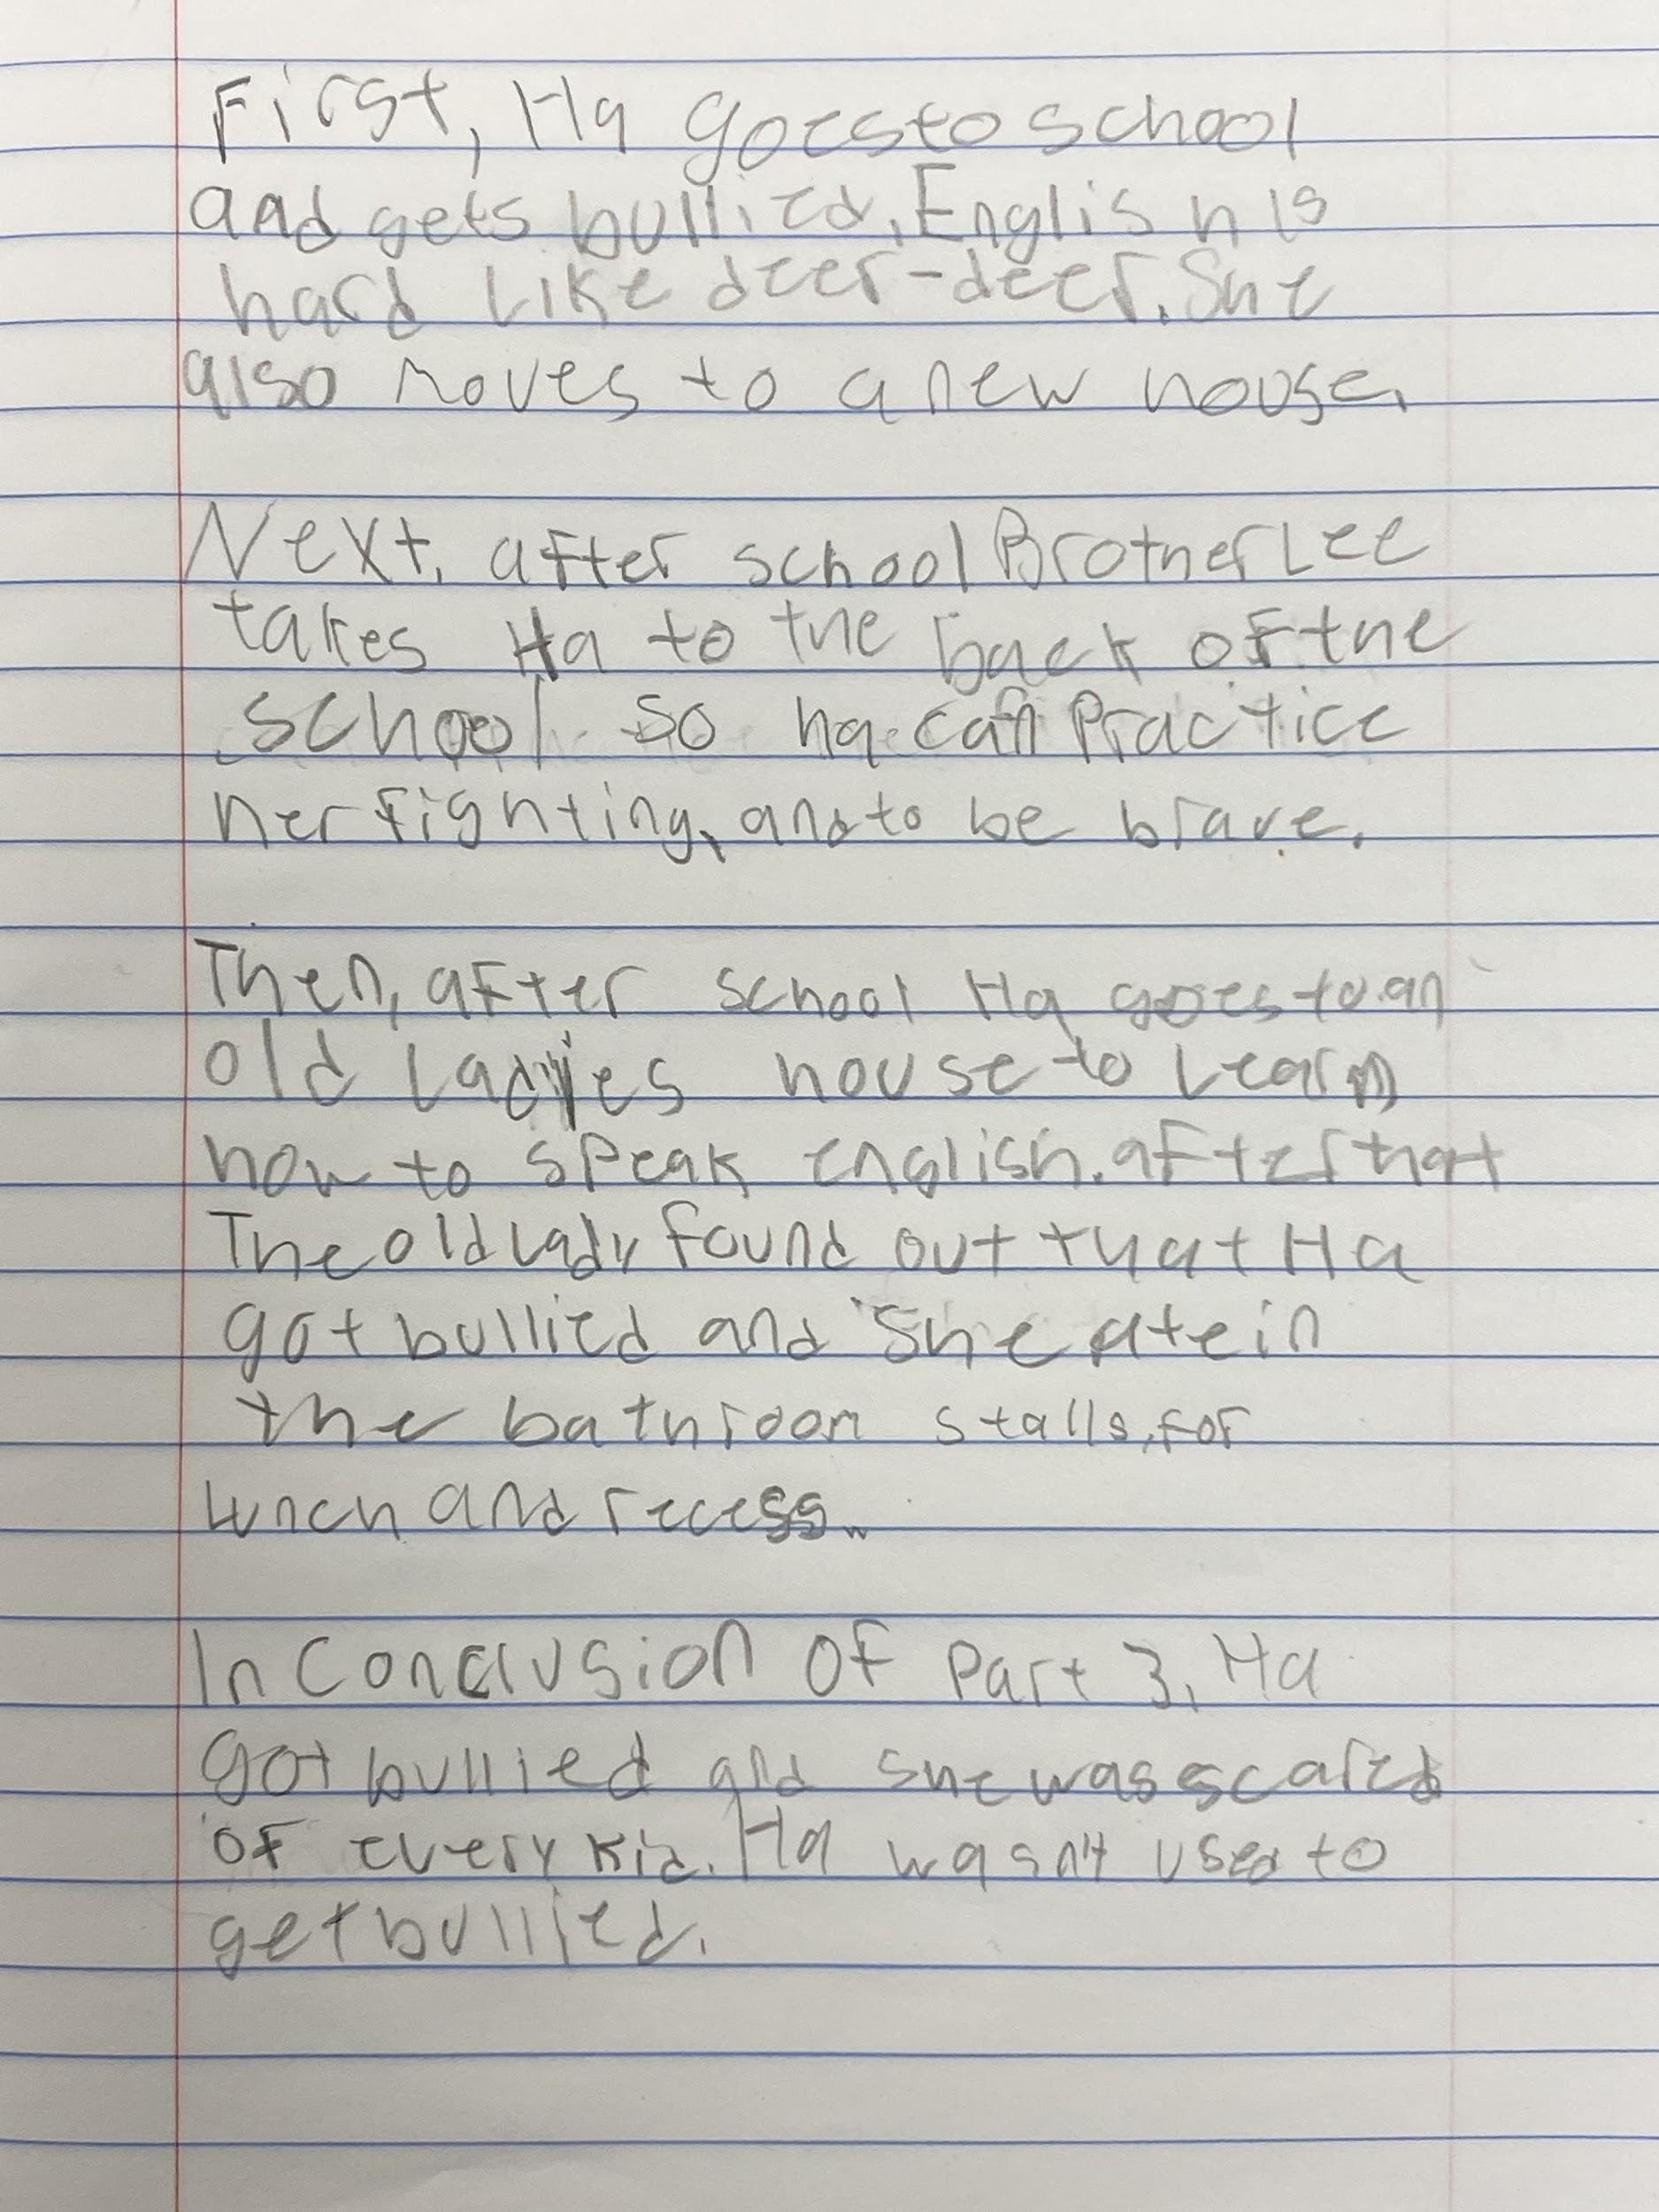 First, Ha goes to school
and gets bullied. English is
hard like deer-deer. She
also moves to a new house.
Next, after school Brother Lee
takes Ha to the back of the
school so ha can Practice
her fighting, and to be brave.
Then, after school Ha goes to an
old Ladies house to Learn
how to speak english. after that
The old Lady found out that Ha
got bullied and She ate in
the bathroom stalls, for
Lunch and recess.
In Conclusion of Part 3, Ha
got bullied and she was scared
of every kid. Ha wasn't used to
get bullied.